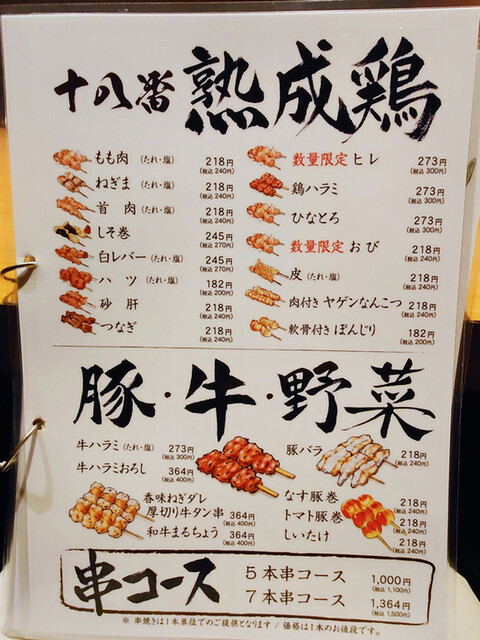 十八番 熟成鶏
もも肉 (たれ・塩) 218円 (税込 240円)
ねぎま (たれ・塩) 218円 (税込 240円)
首肉 (たれ・塩) 218円 (税込 240円)
しそ巻 245円 (税込 270円)
白レバー (たれ・塩) 245円 (税込 270円)
ハツ (たれ・塩) 182円 (税込 200円)
砂肝 218円 (税込 240円)
つなぎ 218円 (税込 240円)
数量限定 ヒレ 273円 (税込 300円)
鶏ハラミ 273円 (税込 300円)
ひなとろ 273円 (税込 300円)
数量限定 おび 218円 (税込 240円)
皮 (たれ・塩) 218円 (税込 240円)
肉付き ヤゲンなんこつ 218円 (税込 240円)
軟骨付き ぼんじり 182円 (税込 200円)
豚・牛・野菜
牛ハラミ (たれ・塩) 273円 (税込 300円)
牛ハラミおろし 364円 (税込 400円)
香味ねぎダレ
厚切り牛タン串 364円 (税込 400円)
和牛まるちょう 364円 (税込 400円)
豚バラ 218円 (税込 240円)
なす豚巻 218円 (税込 240円)
トマト豚巻 218円 (税込 240円)
しいたけ 218円 (税込 240円)
串コース
5本串コース 1,000円 (税込 1,100円)
7本串コース 1,364円 (税込 1,500円)
※ 串焼きは1本単位でのご提供となります / 価格は1本のお値段です。